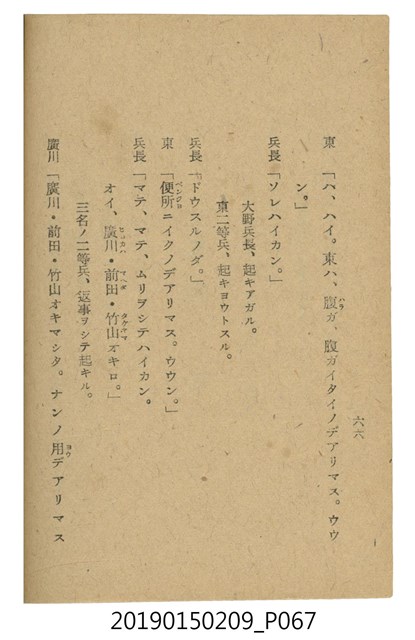 六六
東「ハ、ハイ。東ハ、腹ガ、腹ガイタイノデアリマス。ウウ
ハラ
ン。」
兵長「ソレハイカン。」
大野兵長、起キアガル。
東二等兵、起キヨウトスル。
兵長「ドウスルノダ。」
東「便所ニイクノデアリマス。ウウン。」
ベンジョ
兵長「マテ、マテ、ムリヲシテハイカン。
オイ、廣川・前田・竹山オキロ。」
ヒロカハ マヘダ タケヤマ
三名ノ二等兵、返事ヲシテ起キル。
廣川「廣川・前田・竹山オキマシタ。ナンノ用デアリマス
ヨウ
20190150209_P067